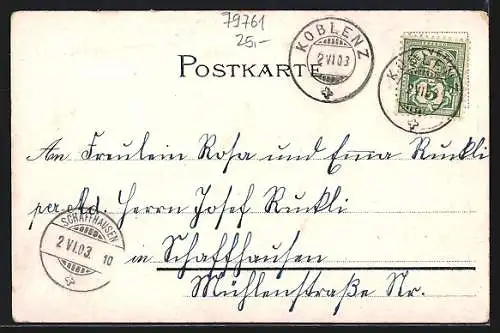 79761
25,-
KOBLENZ
2 VI 03
POSTKARTE
KOBLENZ
An Fräulein Rosa und Emma Ruckli
per Ad. Herrn Josef Ruckli
SCHAFFHAUSEN
2 VI.03. 10
in Schaffhausen
Mühlenstraße Nr.